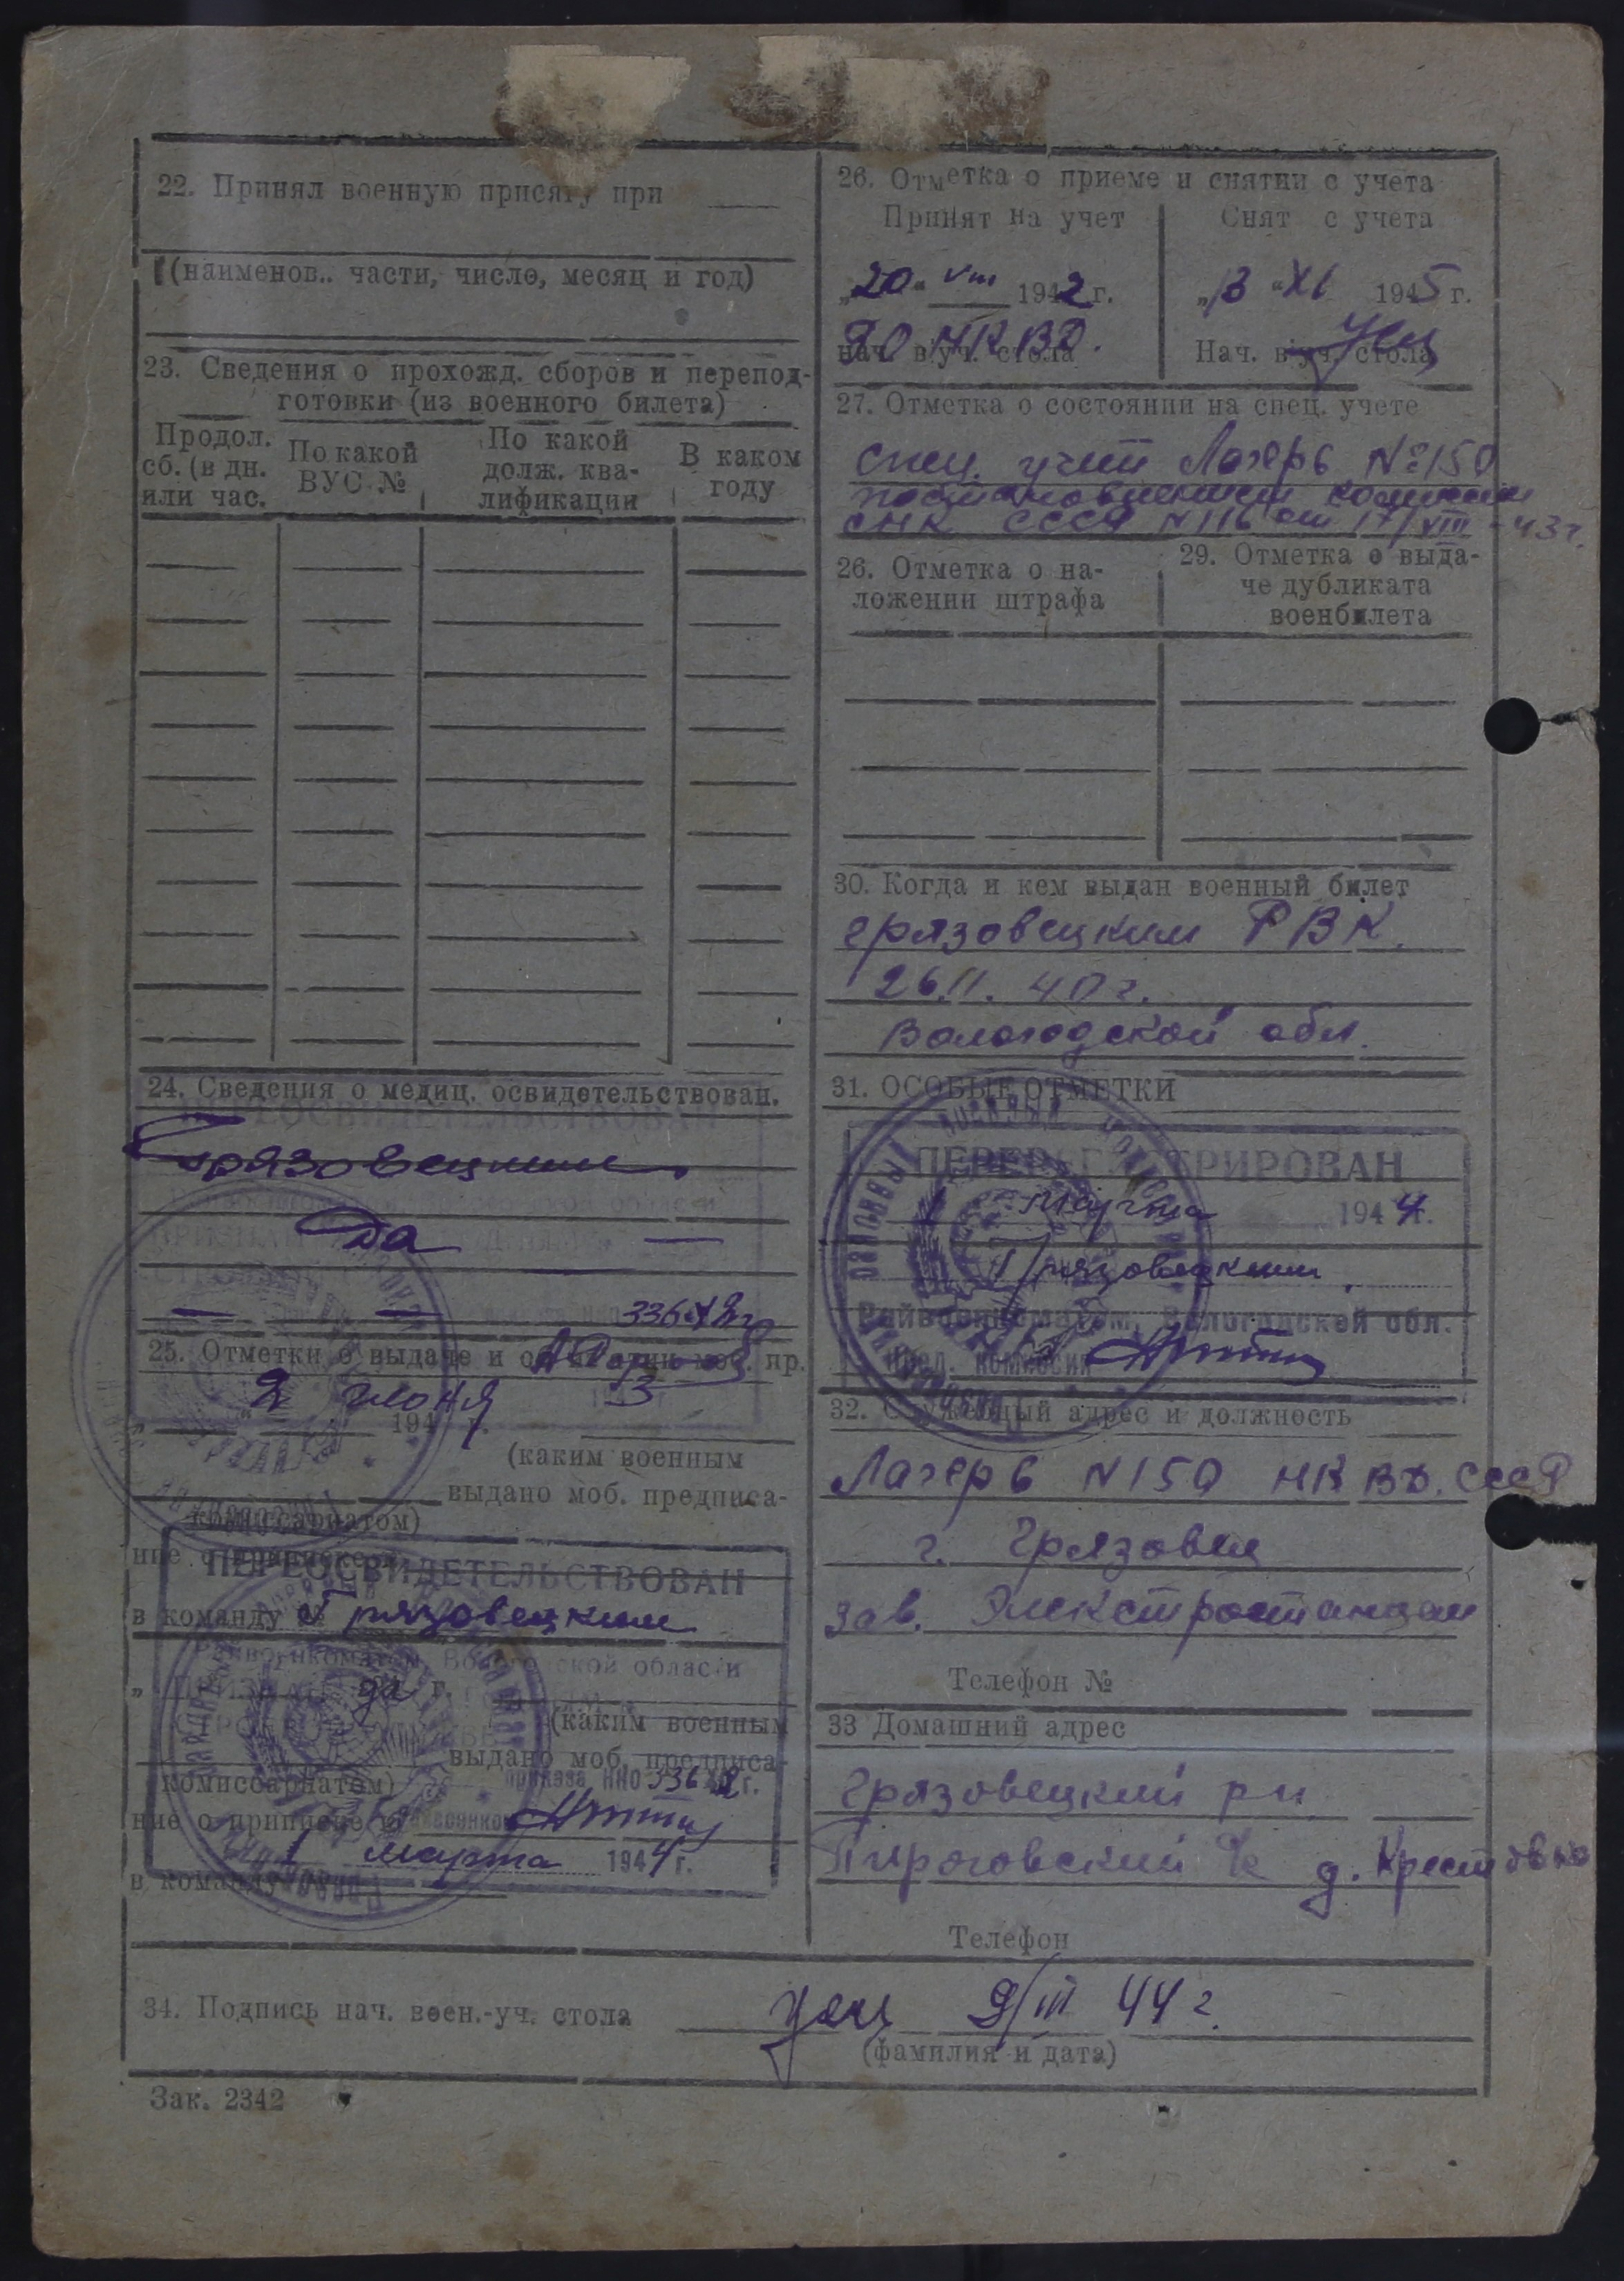 22. Принял военную присягу при
(наименов.. части, число, месяц и год)
23. Сведения о прохожд. сборов и перепод-
готовки (из военного билета)
Продол.
сб. (в дн.
или час.
По какой
ВУС №
По какой
долж. ква-
лификации
В каком
году
24. Сведения о медиц. освидетельствован.
Грязовецким
Да
336 42г
25. Отметки о выдаче и моб. пр.
2 июня 3
194 г.
(каким военным
выдано моб. предписа-
комиссариатом)
ние о приписке
ПЕРЕОСВИДЕТЕЛЬСТВОВАН
в команду №
Грязовецким
Райвоенкоматом Вологодской области
да г.
(каким военным
выдано моб. предписа-
комиссариатом)
приказа НКО 336 42 г.
ние о приписке
1 марта 1944 г.
в команду
26. Отметка о приеме и снятии с учета
Принят на учет
Снят с учета
„20“ VIII 1942 г.
„13“ XI 1945 г.
НКВД.
нач. в/уч. стола
Нач. в/уч. стола
27. Отметка о состоянии на спец. учете
Спец. учет Лагерь №150
постановлением комиссии
СНК СССР N116 от 17/VIII-43г.
26. Отметка о на-
ложении штрафа
29. Отметка о выда-
че дубликата
военбилета
30. Когда и кем выдан военный билет
Грязовецким РВК.
26.II.40г.
Вологодской обл.
31. ОСОБЫЕ ОТМЕТКИ
ПЕРЕРЕГИСТРИРОВАН
1 марта 1944 г.
Грязовецким
Райвоенкоматом, Вологодской обл.
Пред. комиссии
32. Служебный адрес и должность
Лагерь N150 НКВД. СССР
г. Грязовец
зав. Электростанцеи
Телефон №
33 Домашний адрес
Грязовецкий рн
Пироговский с/с д. Крестовка
Телефон
34. Подпись нач. воен.-уч. стола
9/III 44г.
(фамилия и дата)
Зак. 2342